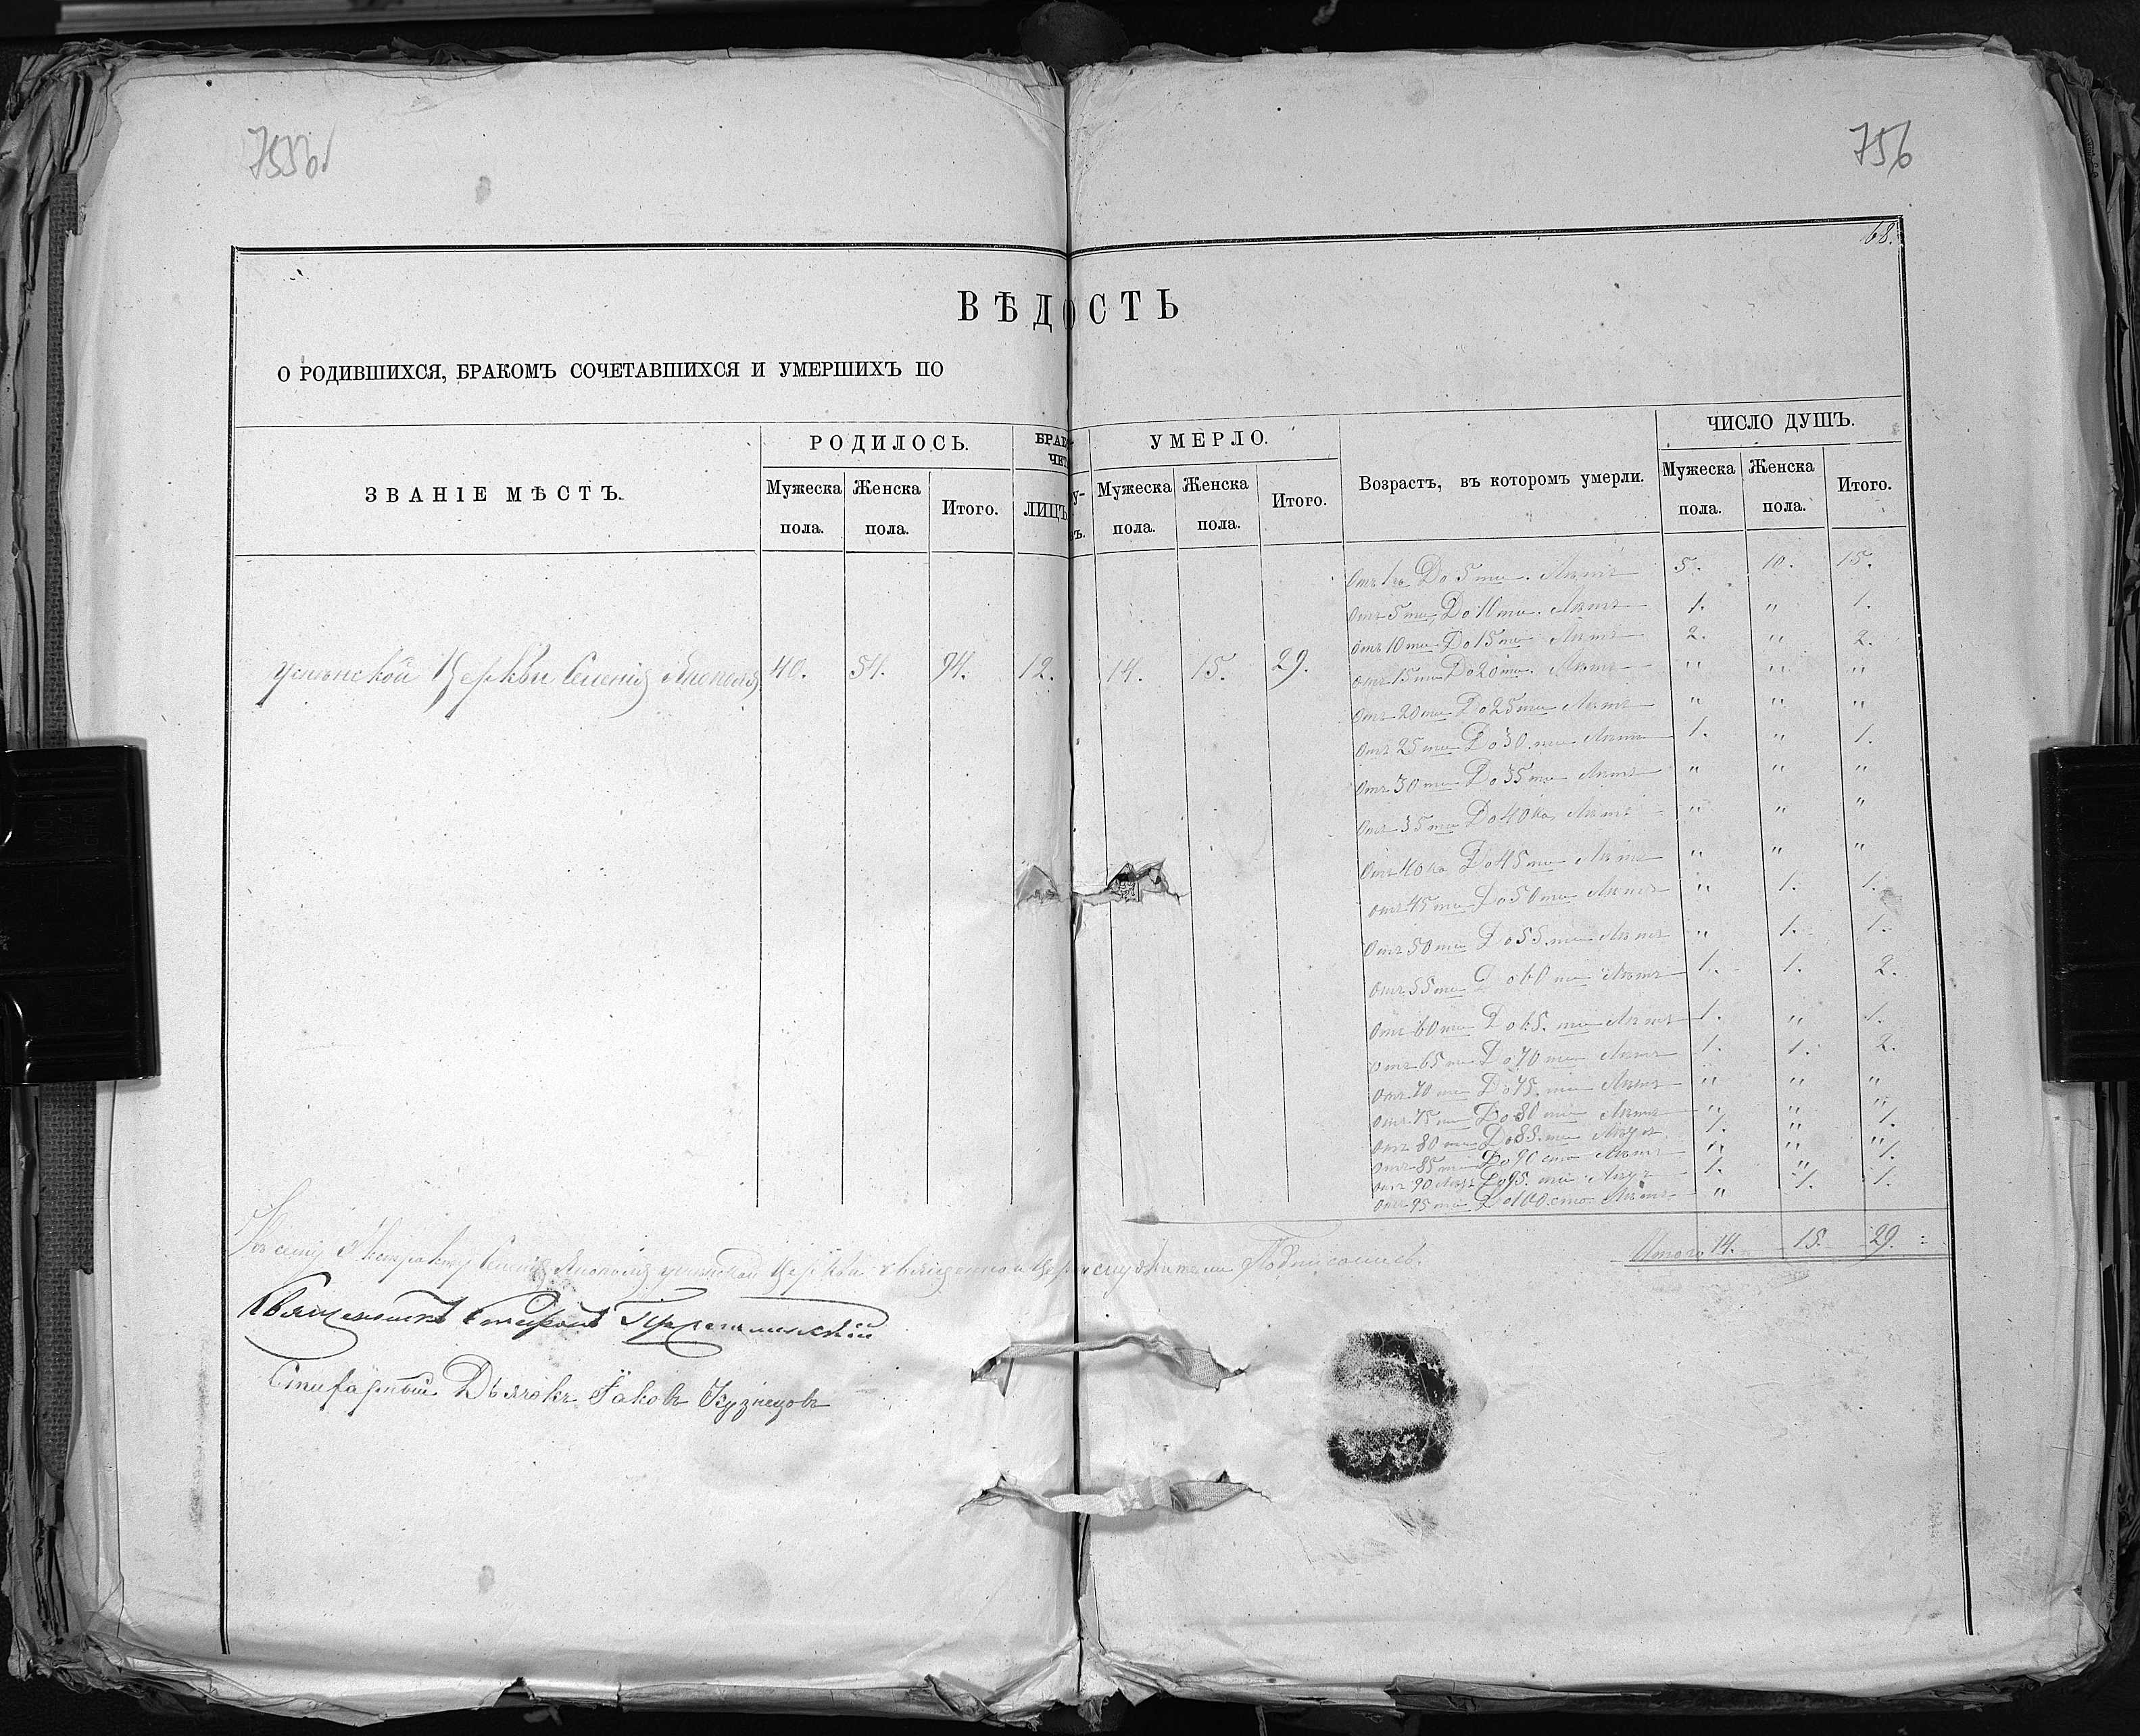 755об
756
68.
ВѢДОСТЬ
О РОДИВШИХСЯ, БРАКОМЪ СОЧЕТАВШИХСЯ И УМЕРШИХЪ ПО
ЗВАНІЕ МѢСТЪ.
РОДИЛОСЬ.
Мужеска пола.
Женска пола.
Итого.
ЛИЦЪ
УМЕРЛО.
Мужеска пола.
Женска пола.
Итого.
Возрастъ, въ которомъ умерли.
ЧИСЛО ДУШЪ.
Мужеска пола.
Женска пола.
Итого.
Церкви Селенія 40. 54. 94. 12. 14. 15. 29.
Отъ 1го До 5ти Лѣтъ 5. 10. 15.
Отъ 5ти До 10ти Лѣтъ 1. " 1.
Отъ 10ти До 15ти Лѣтъ 2. " 2.
Отъ 15ти До 20ти Лѣтъ " " "
Отъ 20ти До 25ти Лѣтъ " " "
Отъ 25ти До 30ти Лѣтъ 1. " 1.
Отъ 30ти До 35ти Лѣтъ " " "
Отъ 35ти До 40ка Лѣтъ " " "
Отъ 40ка До 45ти Лѣтъ " " "
Отъ 45ти До 50ти Лѣтъ " 1. 1.
Отъ 50ти До 55ти Лѣтъ " 1. 1.
Отъ 55ти До 60ти Лѣтъ 1. 1. 2.
Отъ 60ти До 65ти Лѣтъ 1. " 1.
Отъ 65ти До 70ти Лѣтъ 1. 1. 2.
Отъ 70ти До 75ти Лѣтъ " " "
Отъ 75ти До 80ти Лѣтъ " " "
Отъ 80ти До 85ти Лѣтъ 1. " 1.
Отъ 85ти До 90сто Лѣтъ " " "
Отъ 90 До 95ти Лѣтъ 1. " 1.
Отъ 95ти До 100сто Лѣтъ " 1. 1.
Итого 14. 15. 29.
Къ сему Экстракту Селенія Церкви священно и церкослужители Подписались.
Священникъ
Дьячокъ Іаковъ Кузнецовъ